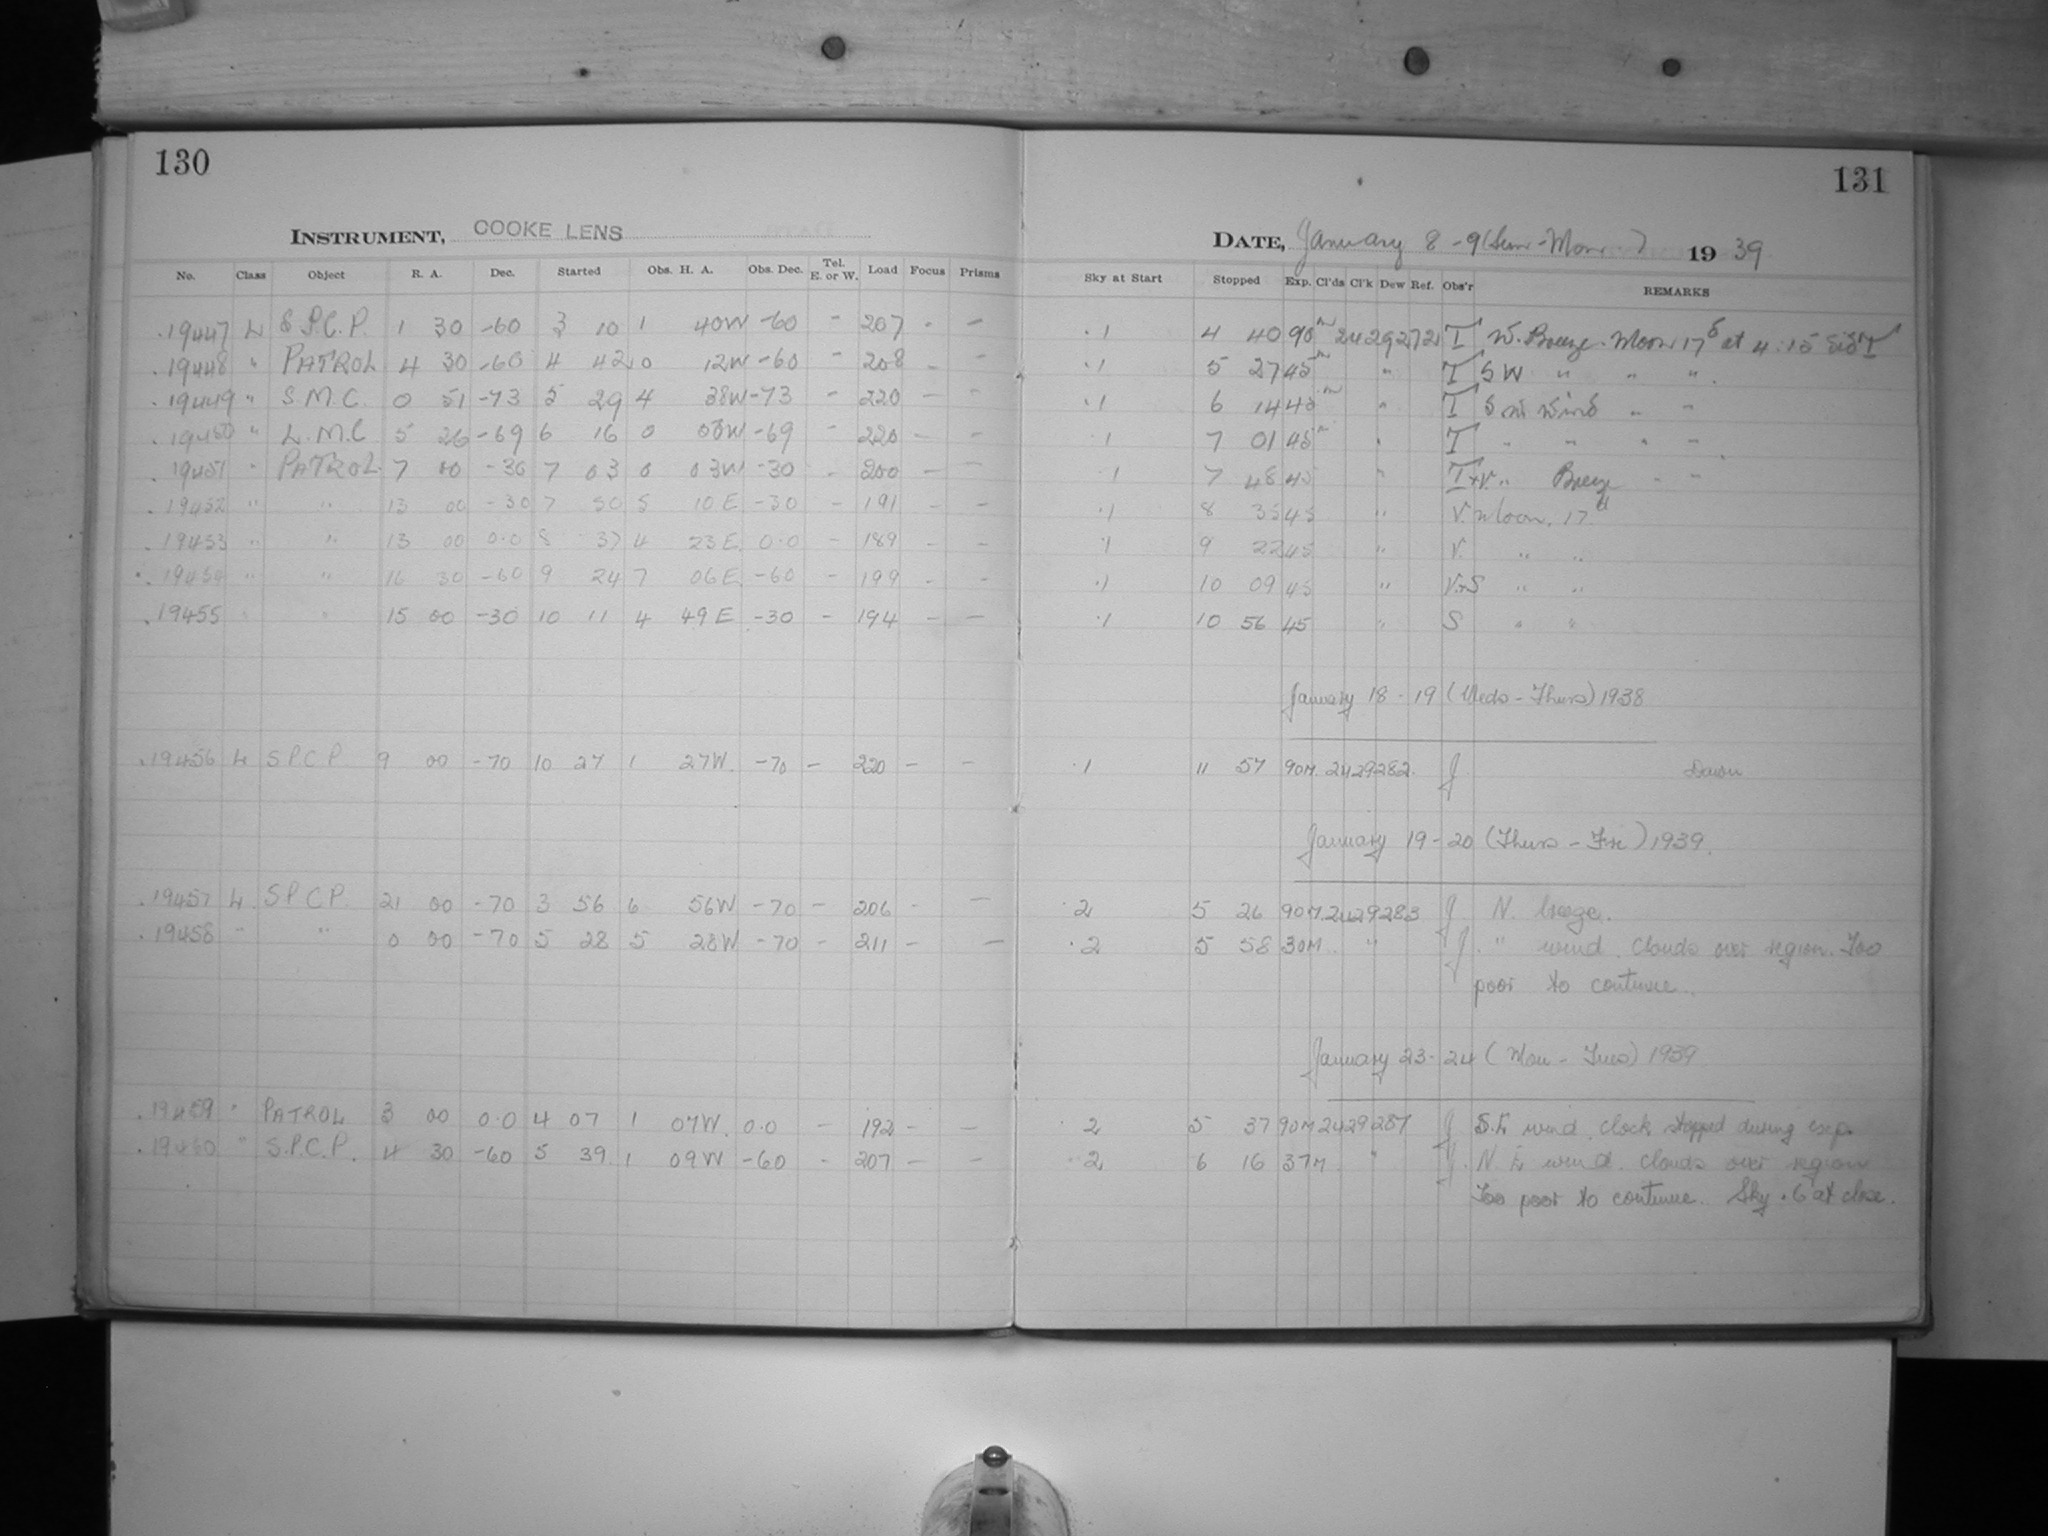 130
INSTRUMENT, COOKE LENS
No. Class Object R. A. Dec. Started Obs. H. A. Obs. Dec. Tel. E. or W. Load Focus Prisms
19447 L S.P.C.P. 1 30 -60 3 10 1 40W -60 - 207 - -
19448 " PATROL 4 30 -60 4 42 0 12W -60 - 208 -
19449 " S.M.C. 0 51 -73 5 29 4 38W -73 - 220 - -
19450 " L.M.C 5 26 -69 6 16 0 08W -69 - 220 - -
19451 " PATROL 7 00 -30 7 03 0 03W -30 - 200 - -
19452 " " 13 00 -30 7 50 5 10E -30 - 191 - -
19453 " " 13 00 0.0 8 37 4 23E 0.0 - 189 - -
19454 " " 16 30 -60 9 24 7 06E -60 - 199 - -
19455 " " 15 00 -30 10 11 4 49E -30 - 194 - -
19456 L SPCP 9 00 -70 10 27 1 27W. -70 - 220 - -
19457 L SPCP. 21 00 -70 3 56 6 56W -70 - 206 - -
19458 " " 0 00 -70 5 28 5 28W -70 - 211 - -
19459 " PATROL 3 00 0.0 4 07 1 07W. 0.0 - 192 - -
19460 " S.P.C.P. 4 30 -60 5 39 1 09W -60 - 207 - -
131
DATE, January 8-9 (Sun-Mon) 1939
Sky at Start Stopped Exp. Cl'ds Cl'k Dew Ref. Obs'r REMARKS
.1 4 40 90m 24 29 272 T W. Breeze. Moon 17d at 4:15 Sid T
.1 5 27 45m " T SW " " "
.1 6 14 45m " T S W Wind " "
.1 7 01 45m " T " " " "
.1 7 48 45 " T+V. " Breeze " "
.1 8 35 45 " V. Moon. 17d
.1 9 22 45 " V. " "
.1 10 09 45 " V+S " "
.1 10 56 45 " S " "
January 18-19 (Weds-Thurs) 1938
.1 11 57 90M. 24 29 282. J Dawn
January 19-20 (Thurs-Fri) 1939.
.2 5 26 90M. 24 29 283 J N. breeze.
.2 5 58 30M. " J. " wind. Clouds over region. Too
poor to continue.
January 23-24 (Mon-Tues) 1939
.2 5 37 90M 24 29 287 J S.E wind. clock stopped during exp.
.2 6 16 37M " J. N.E wind. clouds over region
Too poor to continue. Sky .6 at close.